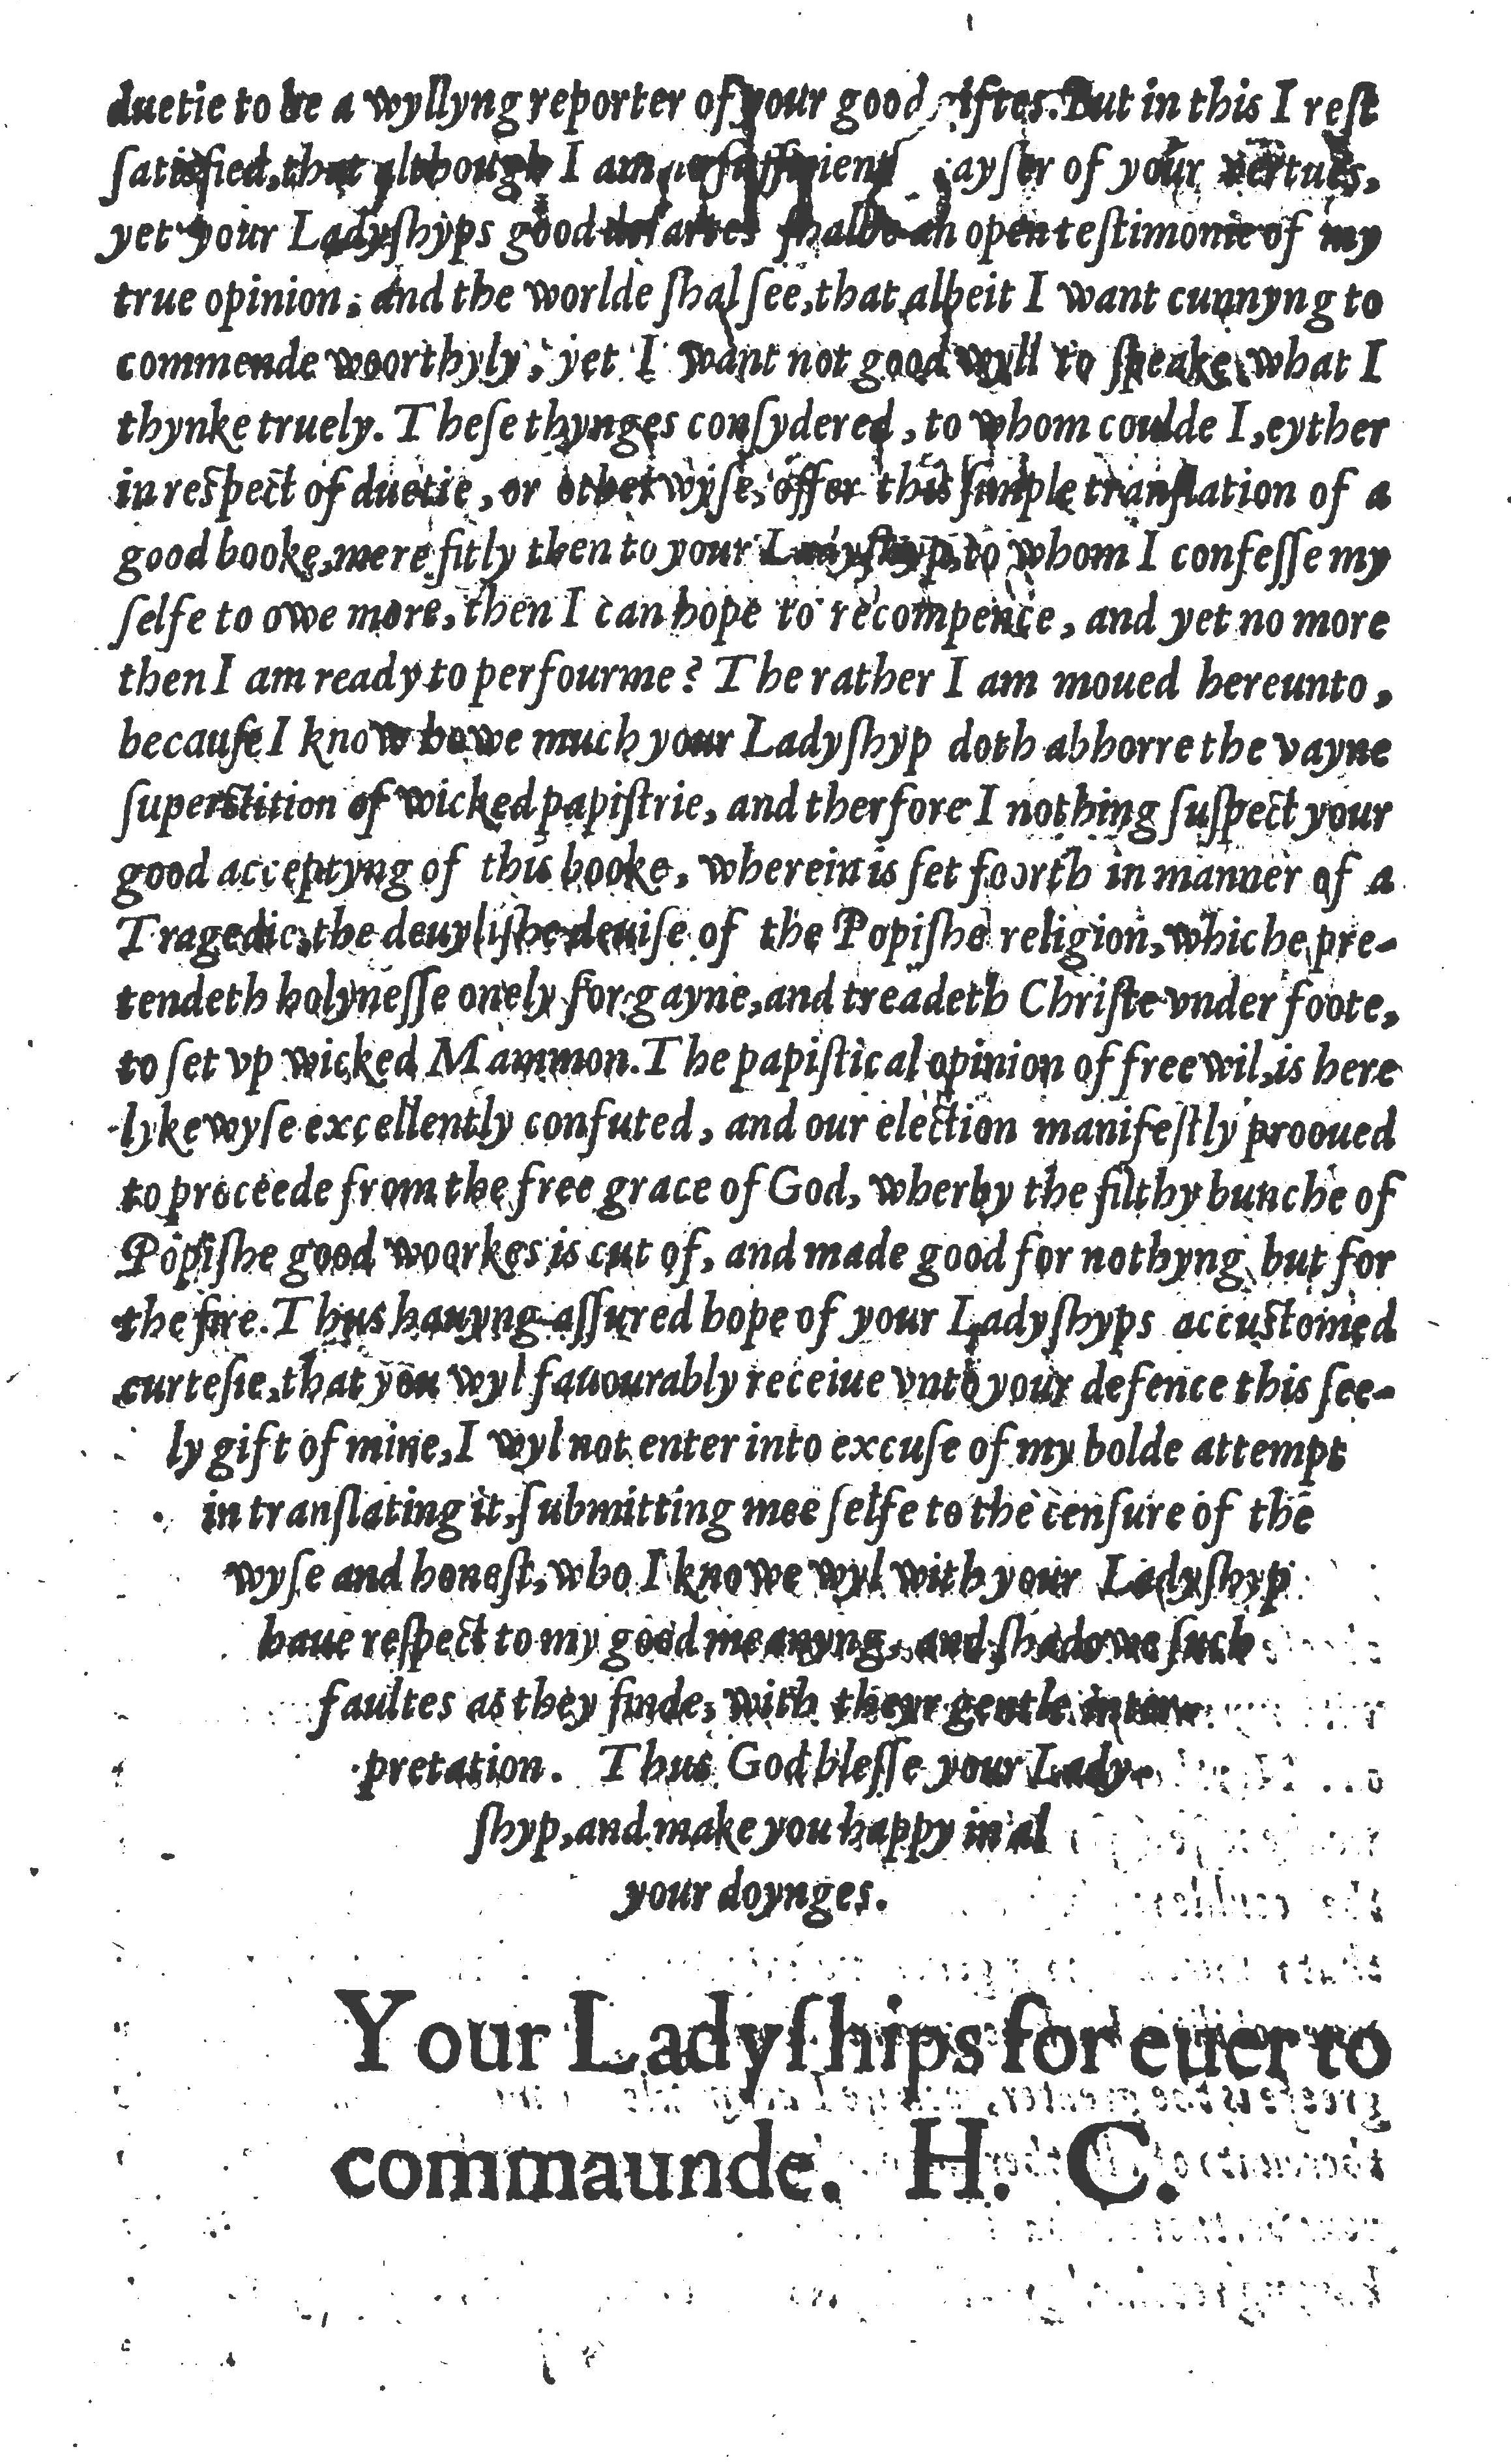 duetie to be a wyllyng reporter of your good giftes. But in this I rest
satisfied, that although I am no sufficient prayser of your vertues,
yet your Ladyshyps good desartes shalbe an open testimonie of my
true opinion: and the worlde shal see, that albeit I want cunnyng to
commende woorthyly, yet I want not good wyll to speake what I
thynke truely. These thynges consydered, to whom coulde I, eyther
in respect of duetie, or otherwyse, offer this simple translation of a
good booke, more fitly then to your Ladyshyp, to whom I confesse my
selfe to owe more, then I can hope to recompence, and yet no more
then I am ready to perfourme? The rather I am moued hereunto,
because I know howe much your Ladyshyp doth abhorre the vayne
superstition of wicked papistrie, and therfore I nothing suspect your
good acceptyng of this booke, wherein is set foorth in manner of a
Tragedie, the deuylishe deuise of the Popishe religion, whiche pre-
tendeth holynesse onely for gayne, and treadeth Christe vnder foote,
to set vp wicked Mammon. The papistical opinion of free wil, is here
lykewyse excellently confuted, and our election manifestly prooued
to proceede from the free grace of God, wherby the filthy bunche of
Popishe good woorkes is cut of, and made good for nothyng but for
the fire. Thus hauyng assured hope of your Ladyshyps accustomed
curtesie, that you wyl fauourably receiue vnto your defence this see-
ly gift of mine, I wyl not enter into excuse of my bolde attempt
in translating it, submitting mee selfe to the censure of the
wyse and honest, who I knowe wyl with your Ladyshyp
haue respect to my good meanyng, and shadowe such
faultes as they finde, with theyr gentle inter-
pretation. Thus God blesse your Lady-
shyp, and make you happy in al
your doynges.
Your Ladyships for euer to
commaunde. H. C.